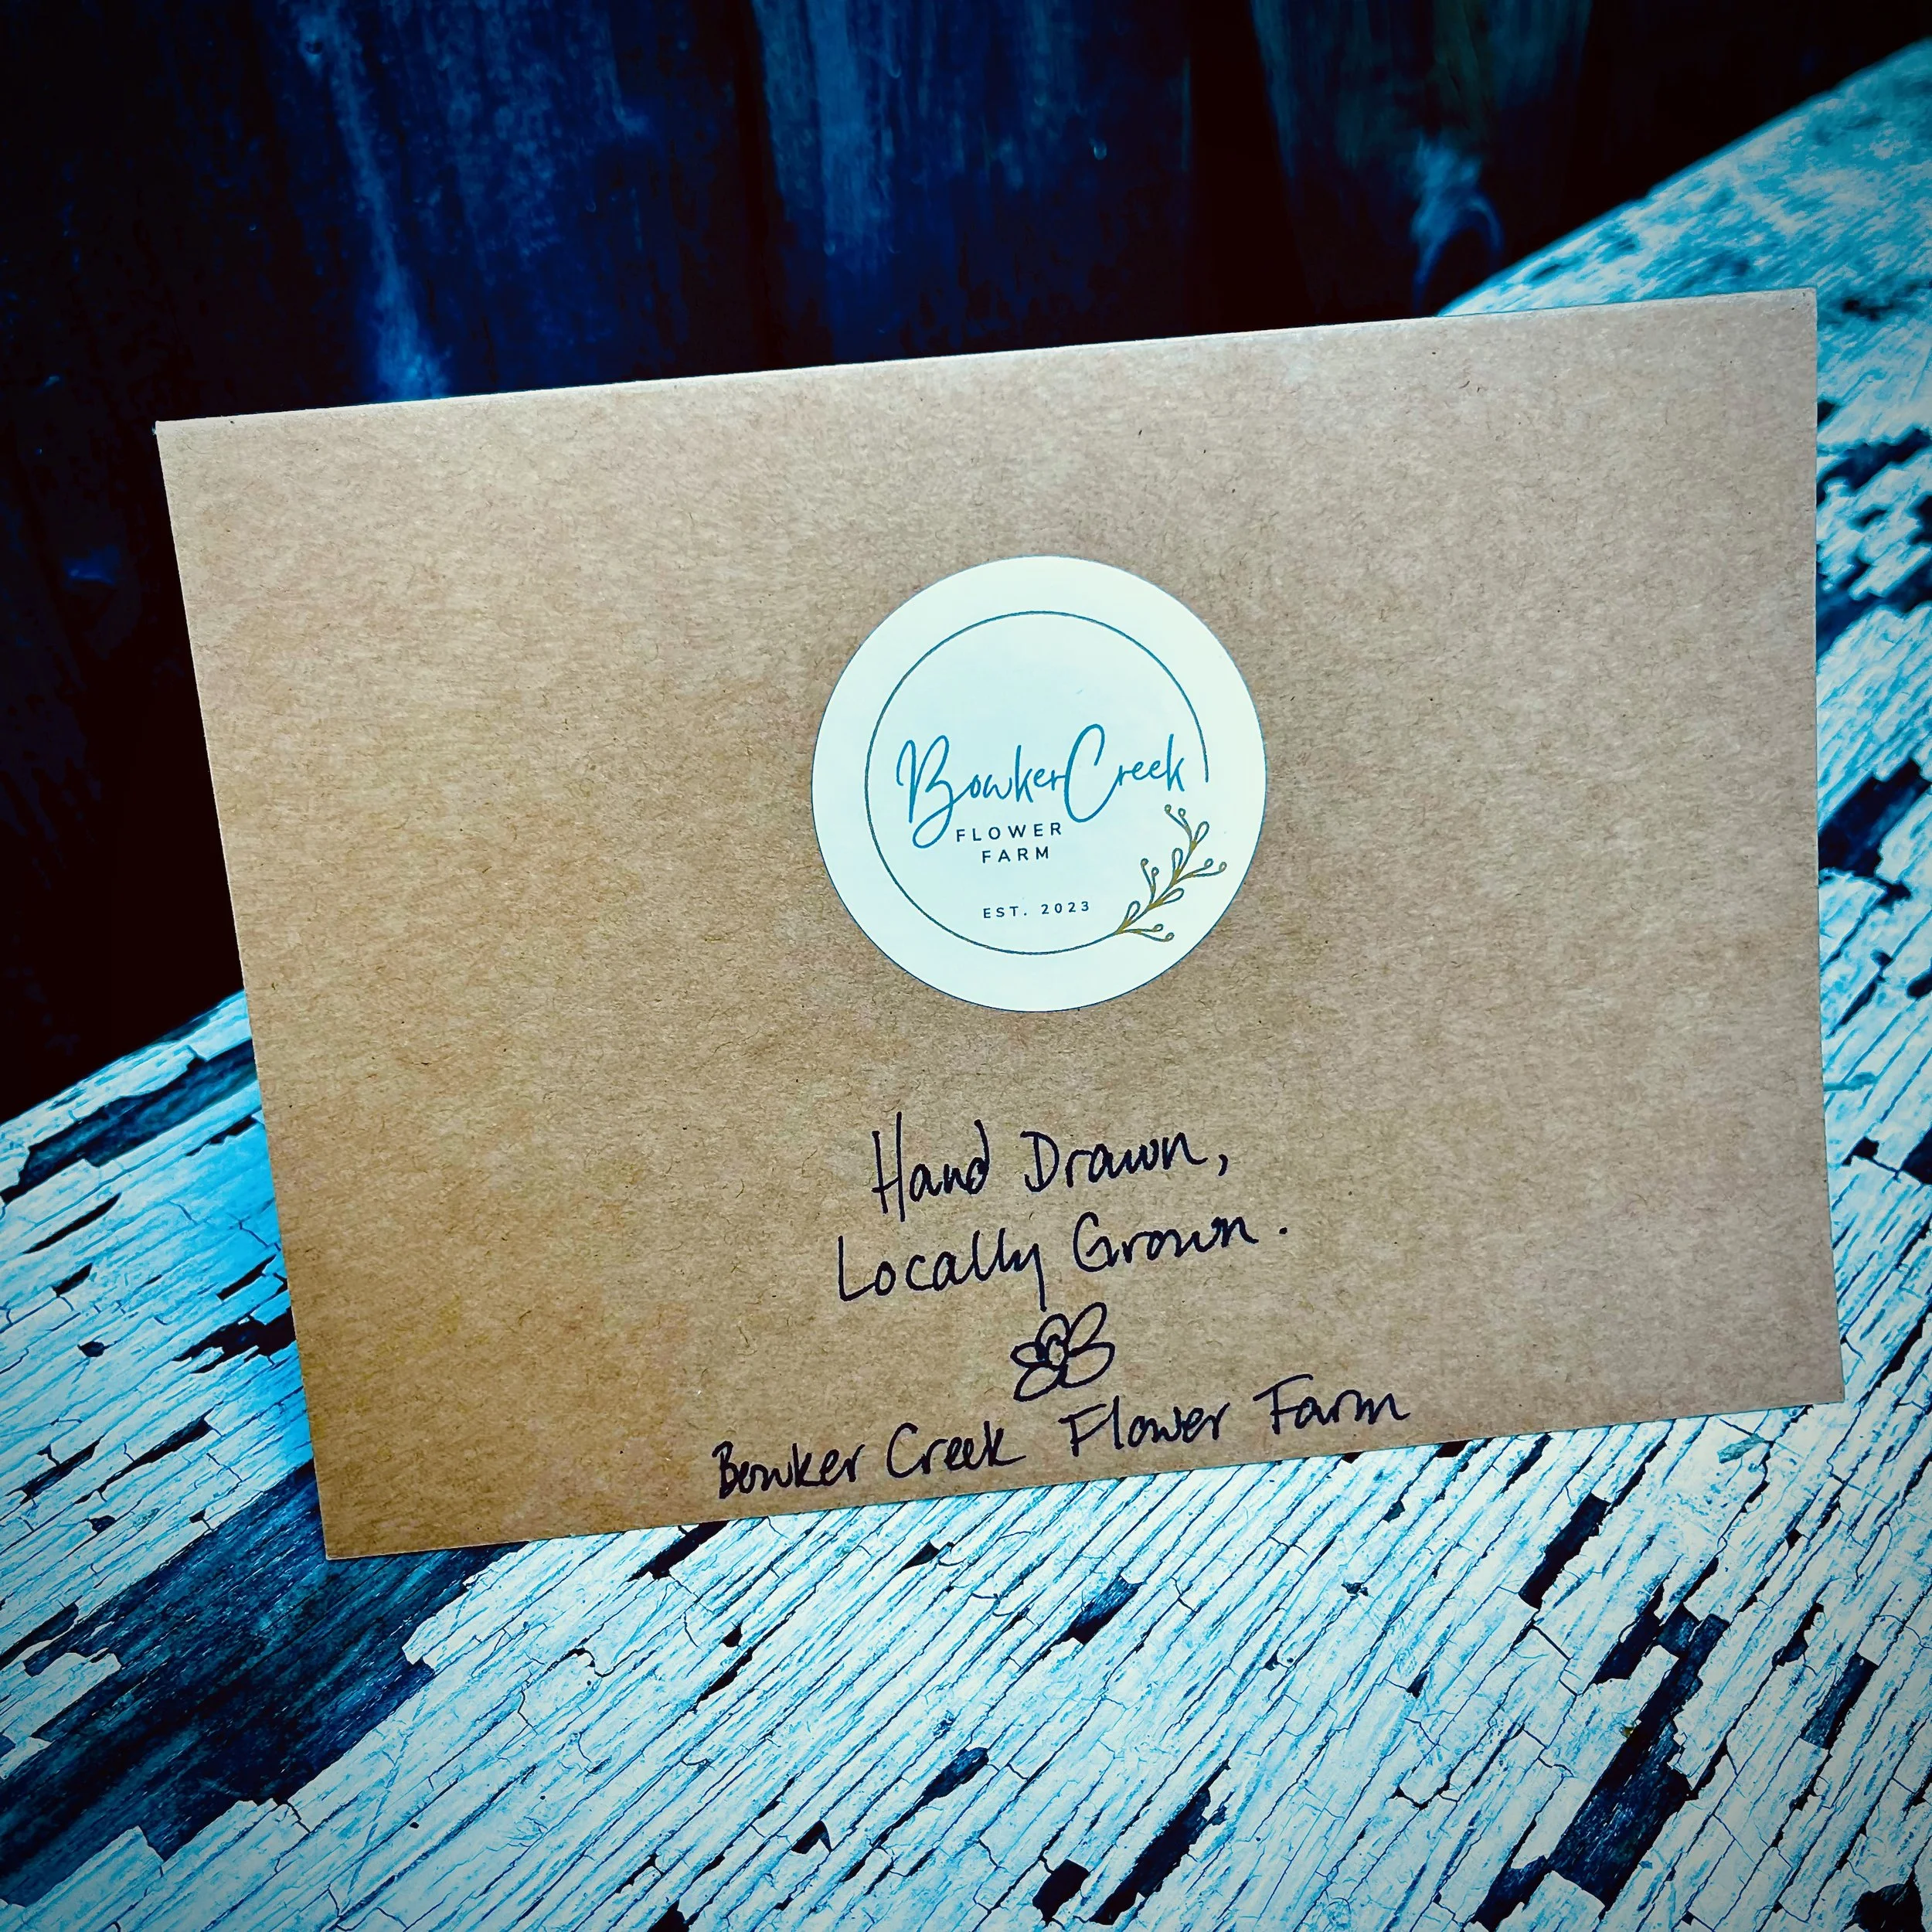 Bowker Creek
FLOWER
FARM
EST. 2023
Hand Drawn,
Locally Grown.
Bowker Creek Flower Farm